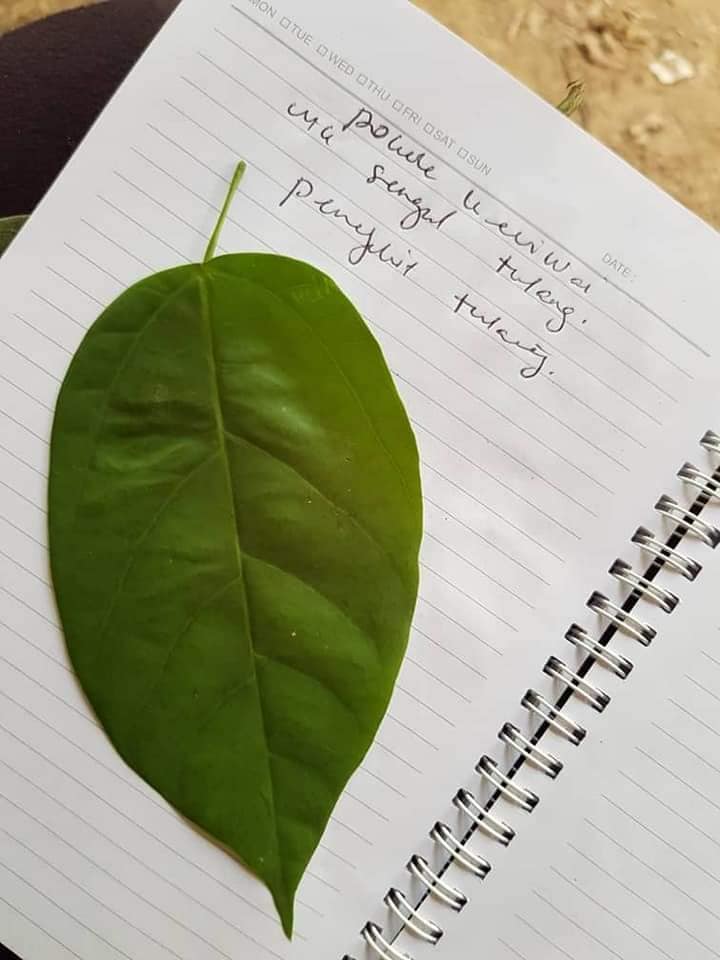 MON TUE WED THU FRI SAT SUN
DATE:
Keriwai
sengal tulang.
Penyakit tulang.